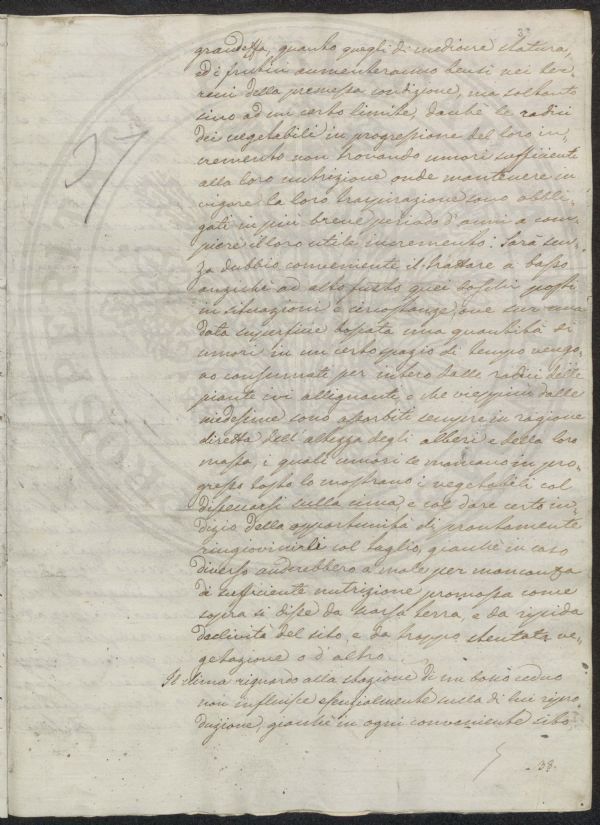 37
grandezza, quanto quegli di mediocre statura,
ed i frutici aumenteranno bensì nei ter-
reni della premessa condizione, ma soltanto
sino ad un certo limite, dacchè le radici
dei vegetabili in progressione del loro in-
cremento non trovando umori sufficienti
alla loro nutrizione onde mantenere in
vigore la loro traspirazione sono obbli-
gati in più breve periodo d'anni a com-
piere il loro utile incremento: Sarà sen-
za dubbio conveniente il trattare a basso
anzichè ad alto fusto quei boschi posti
in situazioni e circostanze, ove sur una
data superficie bosçata una quantità di
umori in un certo spazio di tempo vengo-
no consumati per intero dalle radici delle
piante ivi allignanti, e che vieppiù dalle
medesime sono assorbiti sempre in ragione
diretta dell'altezza degli alberi e della loro
massa, i quali umori se mancano in pro-
gresso tosto lo mostrano i vegetabili col
disseccarsi sulla cima, e col dare certo in-
dizio della opportunità di prontamente
ringiovinirli col taglio, giacchè in caso
diverso anderebbero a male per mancanza
di sufficiente nutrizione promossa come
sopra si disse da scarsa terra, e da ripida
declività del sito, e da troppo stentata ve-
getazione o d'altro.
Il clima riguardo alla stazione di un bosco ceduo
non influisce essenzialmente sulla di lui ripro-
duzione, giacchè in ogni conveniente sito
38.